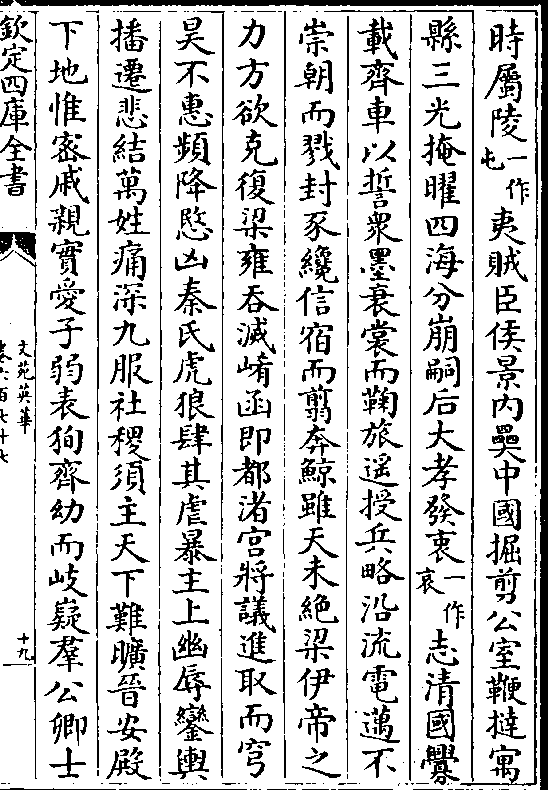 時屬陵一作屯夷賊臣侯景内㚅中國掘剪公室鞭撻㝢
縣三光掩曜四海分崩嗣后大孝發衷一作哀志清國釁
載齊車以誓衆墨衰裳而鞠旅遥授兵略沿流電邁不
崇朝而戮封豕纔信宿而翦奔鯨雖天未絶梁伊帝之
力方欲克復梁雍吞滅崤函即都渚宫將議進取而穹
昊不惠頻降愍凶秦氏虎狼肆其虐暴主上幽辱鑾輿
播遷悲結萬姓痛深九服社稷須主天下難曠晉安殿
下地惟密戚親實愛子弱表狥齊幼而岐嶷羣公卿士
欽定四庫全書
文苑英華
卷六百七十七
十九